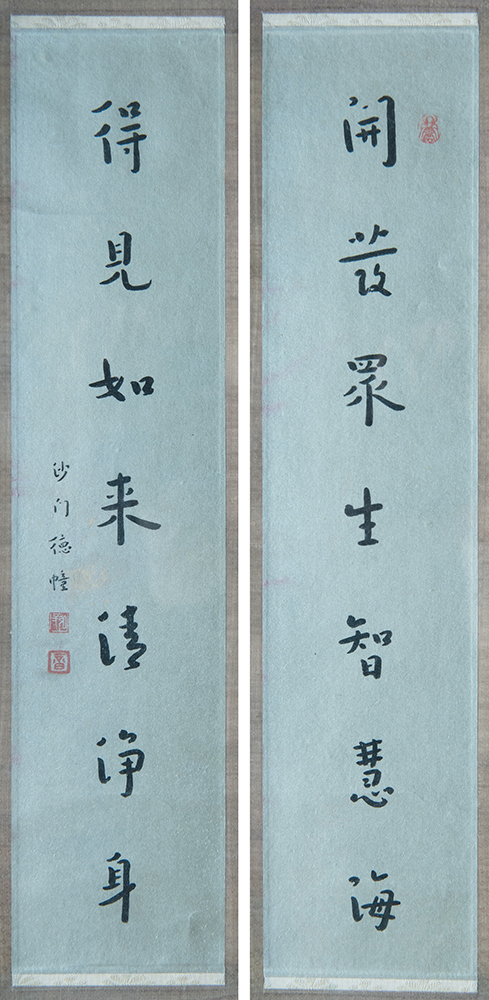 開發眾生智慧海
得見如来清净身
沙门德幢